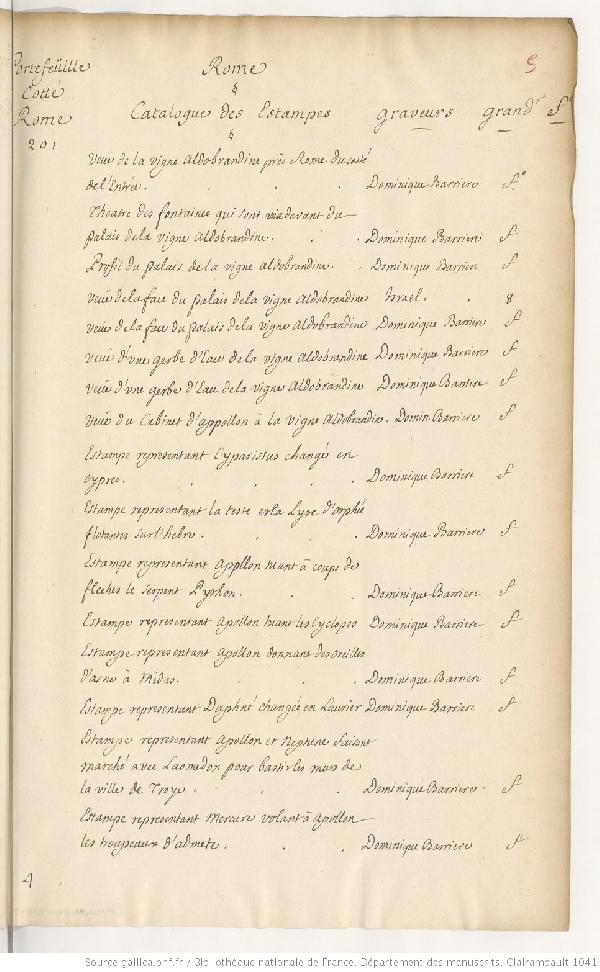 Portefeüille
Cotté
Rome
201
Rome
5
Catalogue des Estampes graveurs grandr. f.
Veüe de la vigne Aldobrandine près Rome du costé
de l'Entrée. Dominique Barriere f.o
Theatre des fontaines qui sont vis devant du
palais de la vigne Aldobrandine. Dominique Barriere f
Profil du palais de la vigne aldobrandine. Dominique Barriere f
Veüe de la face du palais de la vigne Aldobrandine Israel. 8
veüe de la face du palais de la vigne Aldobrandine Dominique Barriere f
veüe d'vne gerbe d'Eau de la vigne Aldobrandine Dominique Barriere f
veüe d'vne gerbe d'Eau de la vigne Aldobrandine Dominique Barriere f
Veüe du Cabinet d'appollon à la vigne Aldobrandine. Domin. Barriere f
Estampe representant Cyparissus changé en
cypres. Dominique Barriere f
Estampe representant la teste et la Lyre d'orphé
flotantes sur l'hebre. Dominique Barriere f
Estampe representant Appllon tuant à coups de
fleches le serpent Python. Dominique Barriere f
Estampe representant Apollon tuant les Cyclopes Dominique Barriere f
Estampe representant Apollon donnant des oreilles
d'asne à Midas. Dominique Barriere f
Estampe representant Daphné changée en Laurier Dominique Barriere f
Estampe representant Apollon et Neptune faisant
marché avec Laomedon pour bastir les murs de
la ville de Troye. Dominique Barriere. f
Estampe representant Mercure volant à Apollon
les troupeaux d'admete. Dominique Barriere f
4
Source gallica.bnf.fr / Bibliothèque nationale de France. Département des manuscrits. Clairambault 1041